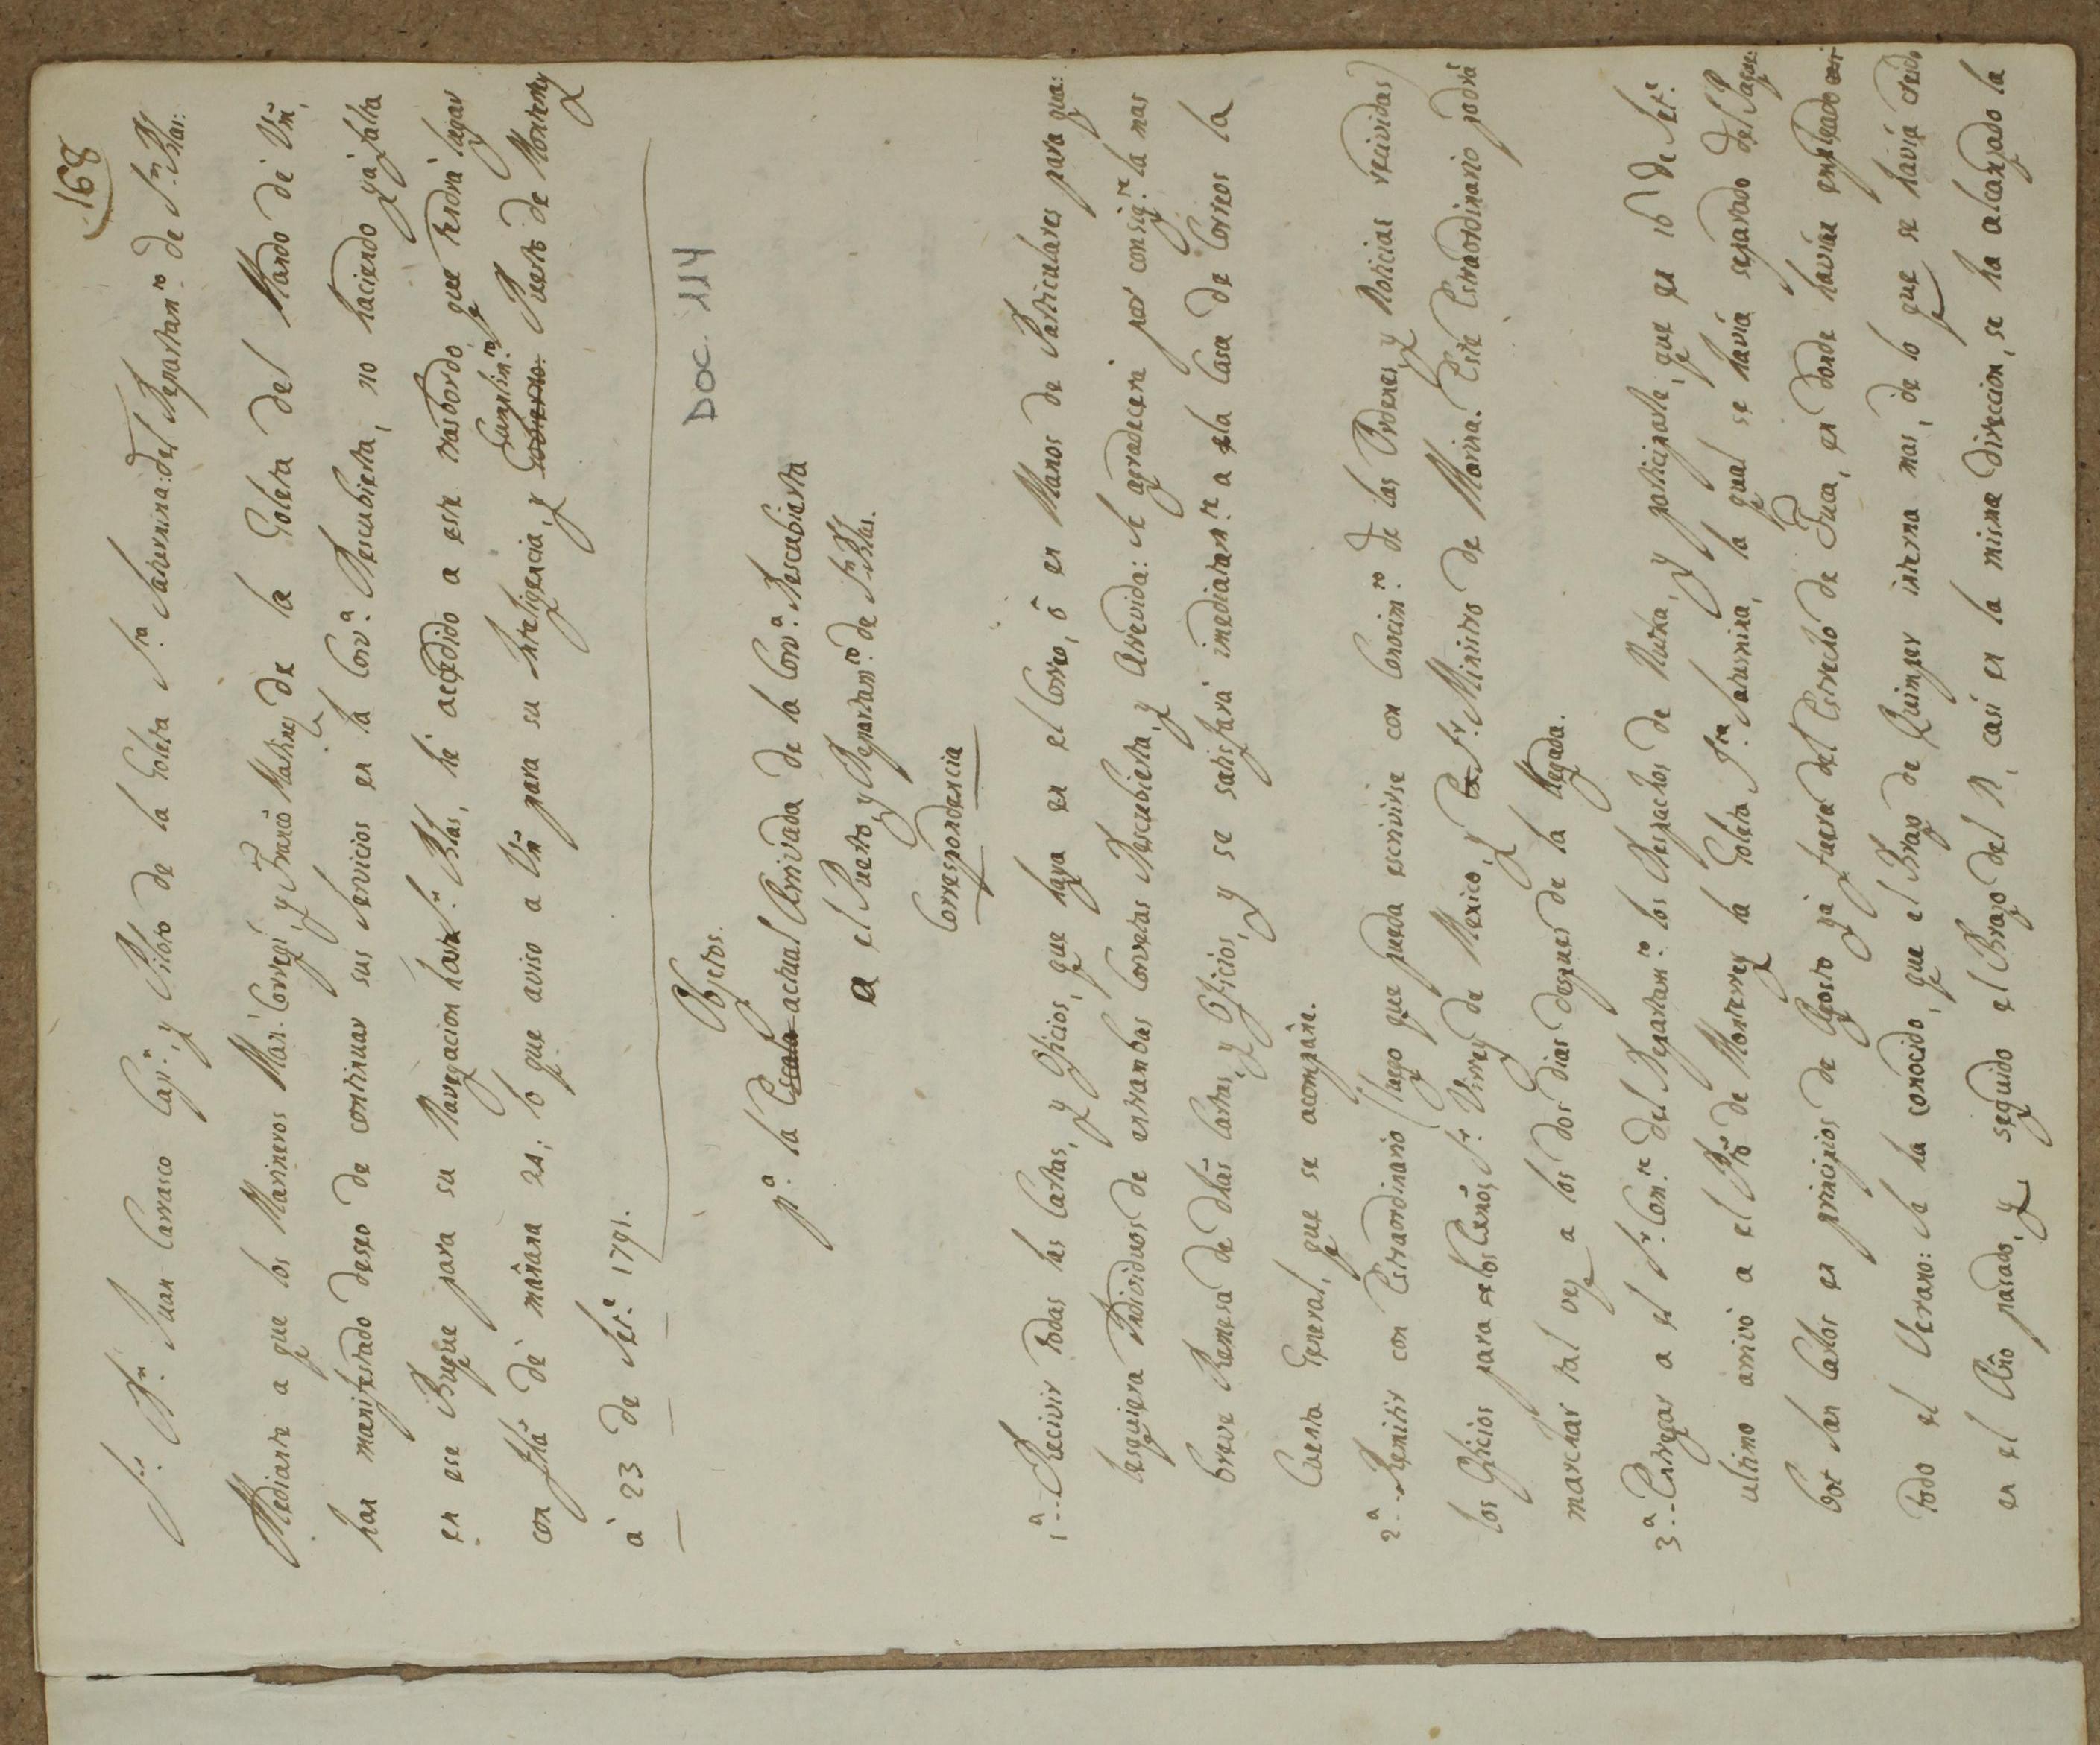 168
S.r D.n Juan Carrasco Cap.n, y Piloto de la Goleta S.ta Saturnina: del Departam.to de S.n Blas:
Mediante a que los Marineros Man.l Corregi, y Franco Martinez de la Goleta del Mando de Vm,
han manifestado deseo de continuar sus Servicios en la Corv.a Descubierta, no haciendo ya falta
en ese Buque para su Navegacion hasta S.n Blas, he accedido a este trasbordo, que tendrá lugar
con fha de mañana 24; lo que aviso a Vm para su Inteligencia, y Gobierno. Cumplim.to Puerto de Monterey
à 23 de Set.e 1791.
DOC. 114
Objetos.
p.a la Escala actual Arrivada de la Corv.a Descubierta
a el Puerto, y Departam.to de S.n Blas.
Correspondencia
1.a -- Recivir todas las Cartas, y Oficios, que haya en el Correo, ô en Manos de Particulares para qua:
lesquiera Individuos de entrambas Corvetas Descubierta, y Atrevida: Se agradecerá por consig.te la mas
breve Remesa de dhas Cartas, y Oficios, y se satisfará imediatam.te a la Casa de Correos la
Cuenta General, que se acompañe.
2.a -- Remitir con Extraordinario (luego que pueda escrivirse con Conocim.to de las Ordenes, y Noticias recividas)
los Oficios para los Exmos S.r Virrey de Mexico, y S.r Ministro de Marina. Este Extraordinario podrá
marchar tal vez a los dos dias despues de la llegada.
3.a -- Entregar a el S.r Com.te del Departam.to los Despachos de Nutka, y participarle, que en 16 de Set.e
ultimo arrivó a el Pto de Monterrey la Goleta S.ta Saturnina, la qual se havia separado del Paque:
bot San Carlos en principios de Agosto ya fuera del Estrecho de Fuca, en donde havian empleado casi
todo el Verano: Se ha conocido, que el Brazo de Quimper interna mas, de lo que se havia creido
en el Año pasado, y seguido el Brazo del N, casi en la misma direccion, se ha alcanzado la